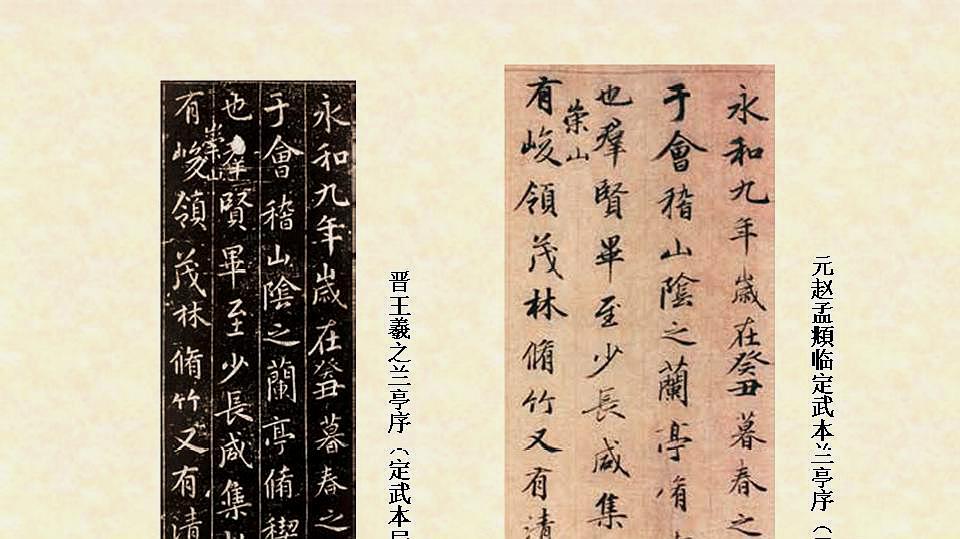 永和九年歲在癸丑暮春之
于會稽山陰之蘭亭脩禊
也羣賢畢至少長咸集
崇山
有峻領茂林脩竹又有清
晋王羲之兰亭序（定武本
永和九年歲在癸丑暮春之
于會稽山陰之蘭亭脩
也羣賢畢至少長咸集
崇山
有峻領茂林脩竹又有清
元赵孟頫临定武本兰亭序（